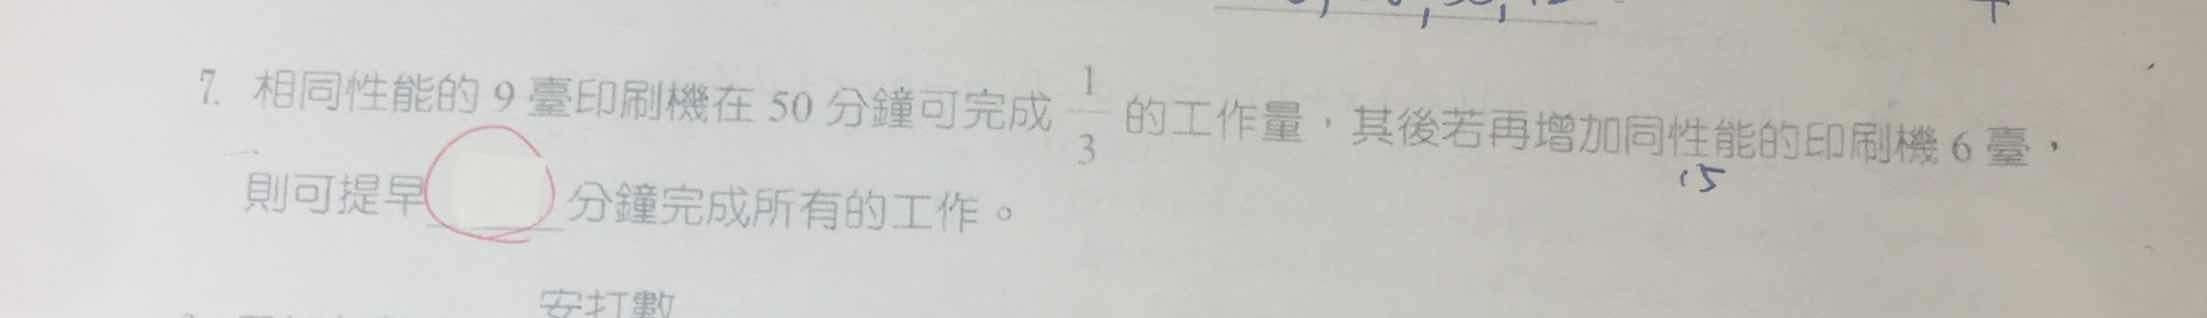 7. 相同性能的 9 臺印刷機在 50 分鐘可完成 1/3 的工作量，其後若再增加同性能的印刷機 6 臺，
15
則可提早 分鐘完成所有的工作。
安打數